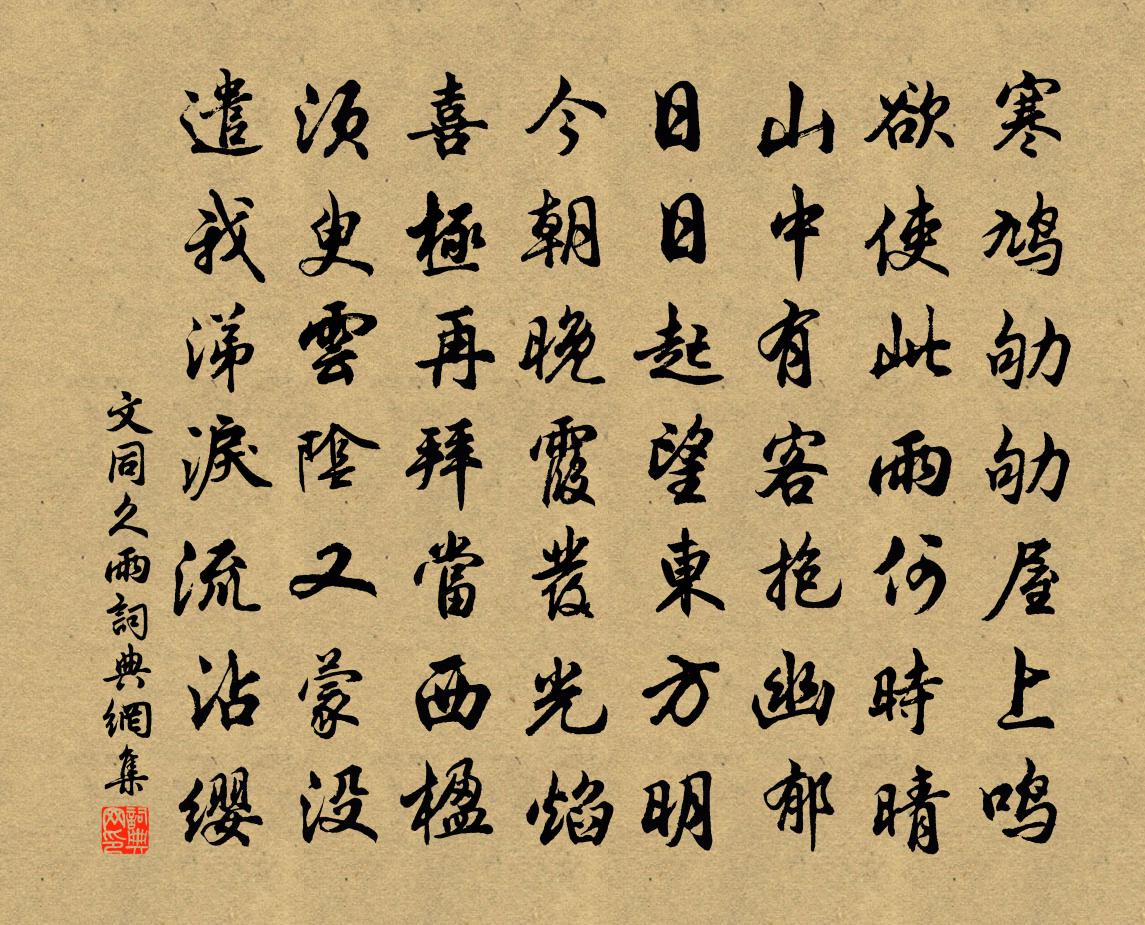 寒鳩劬劬屋上鳴
欲使此雨何時晴
山中有客抱幽郁
日日起望東方明
今朝晚霞發光焰
喜極再拜當西楹
須臾雲陰又蒙没
遣我涕淚流沾纓
文同久雨詞典網集
詞典网印